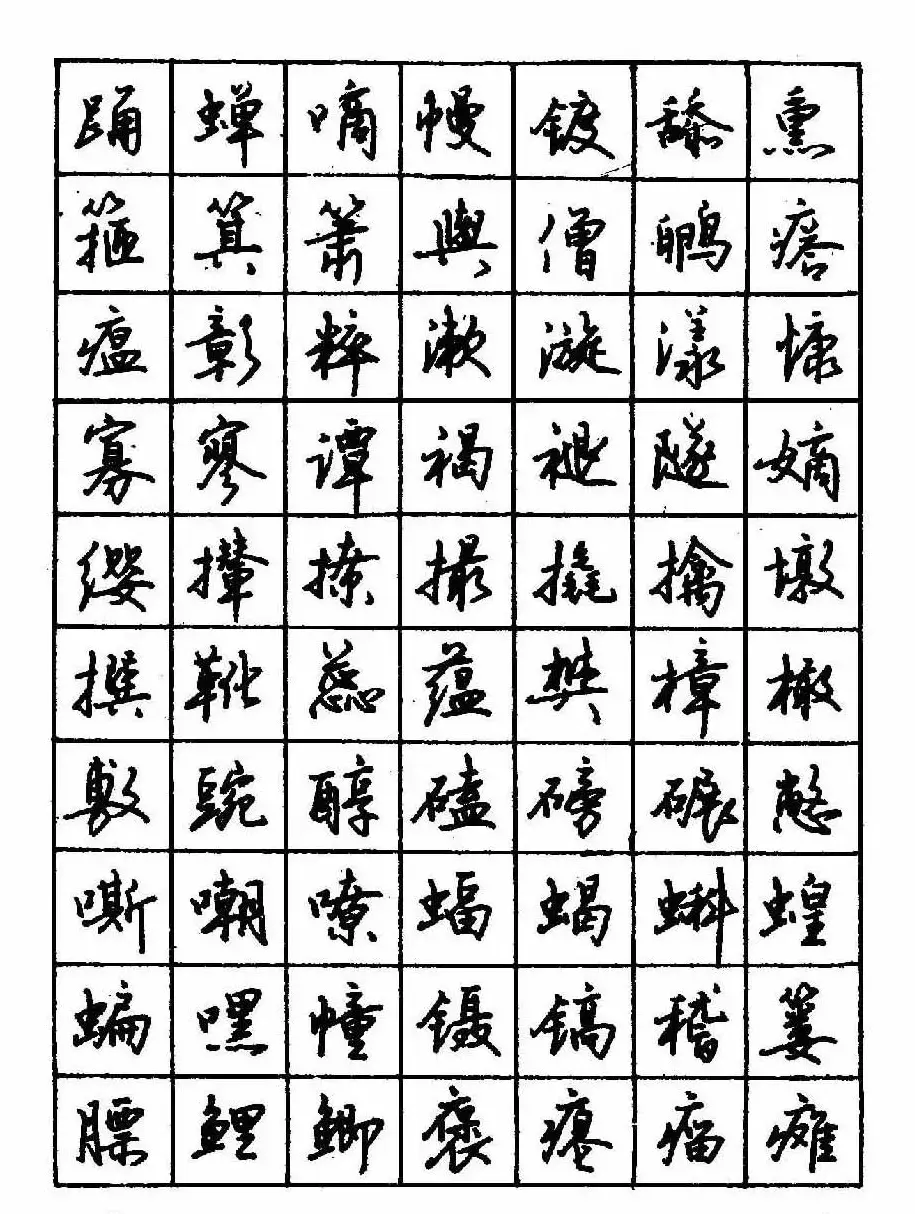 踊蝉嘀幔镀舔熏
箍箕箫舆僧鹏瘩
瘟彰粹漱漩漾慷
寡寥谭褐褪隧嫡
缨撵撩撮撬擒墩
撰靴蕊蕴樊樟橄
敷豌醇磕磅碾憋
嘶嘲嘹蝠蝎蝌蝗
蝙嘿幢镊镐稽篓
膘鲤鲫褒瘪瘤瘫